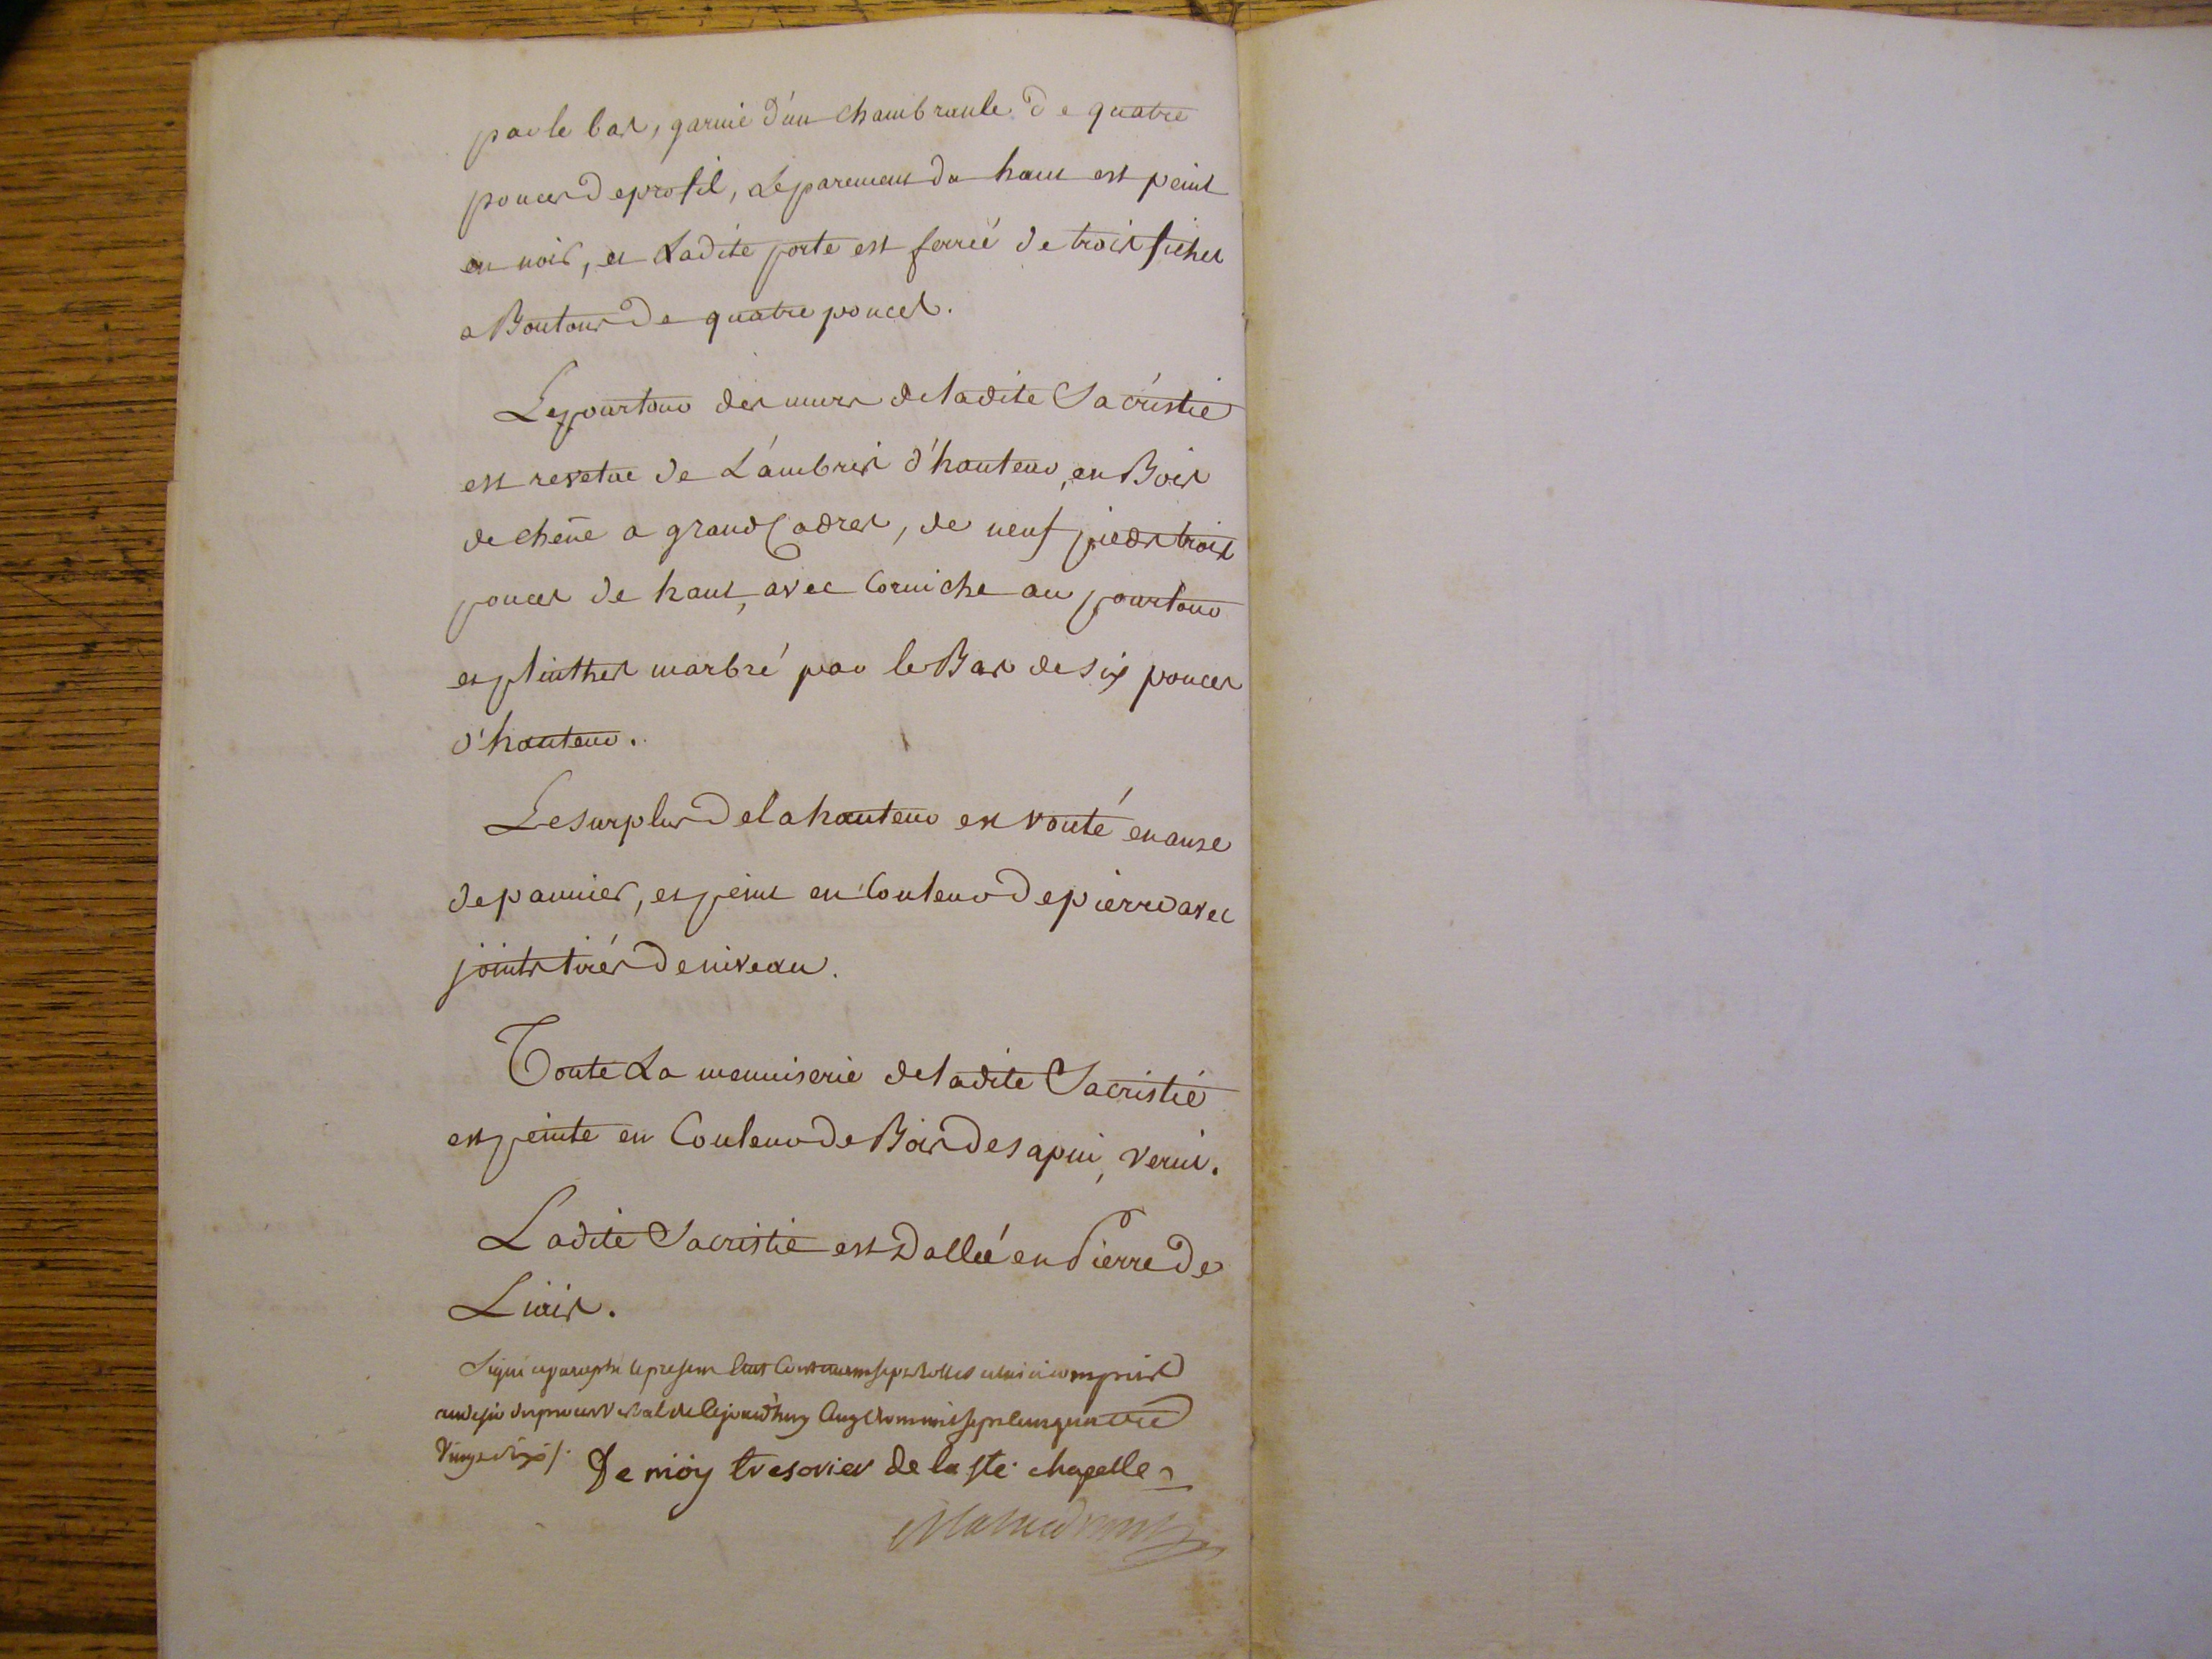 par le bas, garnie d'un chambranle de quatre
pouces de profil, Le parement du haut est peint
en noir, et Ladite porte est ferreé de trois fiches
a Boutons de quatre pouces.
Le pourtour des murs de ladite Sacristie
est revetue de Lambris d'hauteur, en Bois
de chêne a grand Cadres, de neuf pieds trois
pouces de haut, avec Corniche au pourtour
et plinthes marbré par le Bas de six pouces
d'hauteur.
Le surplus de la hauteur est vouté en anse
de pannier, et peint en Couleur de pierre avec
joints tirés de niveau.
Toute La menuiserie de ladite Sacristie
est peinte en Couleur de Bois de sapin, verni.
Ladite Sacristie est Dalleé en Pierre de
Liais.
Signé et paraphé le present Etat Contenant sept Rolles celui ci compris
au desir du procès verbal de cejourd'huy Cinq mil sept cent quatre
Vingt dix /.
De moy tresorier de la ste chapelle